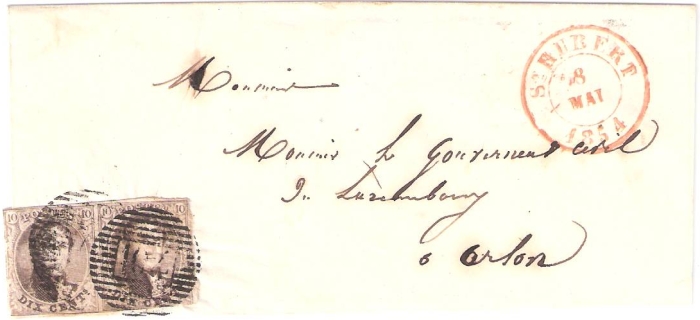 Monsieur
Monsieur le Gouverneur civil
Du Luxembourg
à Arlon
ST HUBERT
8
MAI
1854
10 POSTES 10
10 POSTES 10
DIX CENTS
DIX CENTS